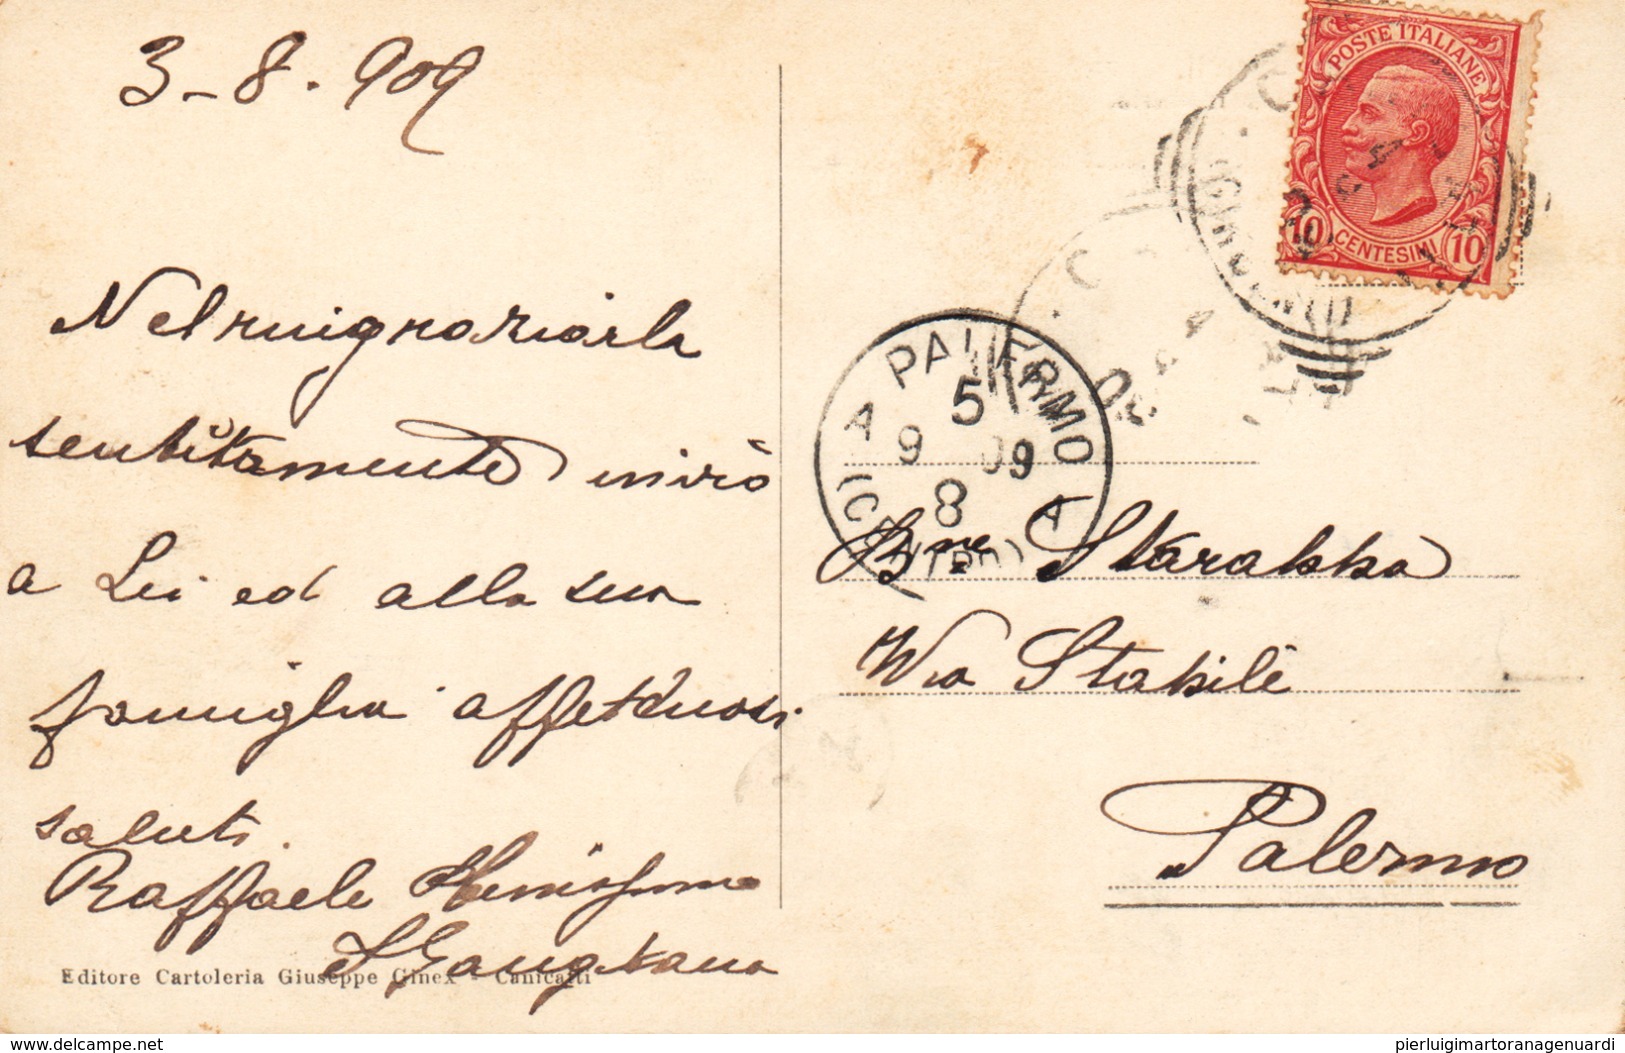 3-8.909
Nel ringraziarla
sentitamente invio
a Lei ed alla sua
famiglia affettuosi
saluti.
Raffaele
Editore Cartoleria Giuseppe Ginex - Canicatti
POSTE ITALIANE
10 CENTESIMI 10
(Girgenti)
PALERMO
5
A 9 09
8 A
(CENTRO)
Bne Starabba
Via Stabile
Palermo
www.delcampe.net
pierluigimartoranagenuardi